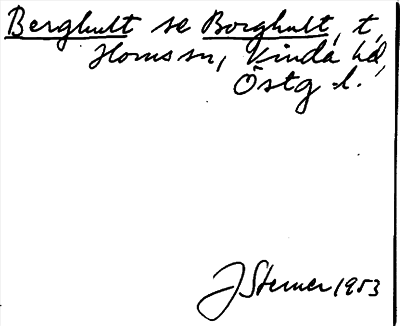 Berghult se Borghult, t,
Horns sn, Kinda hd,
Östg l.
J Sterner 1953